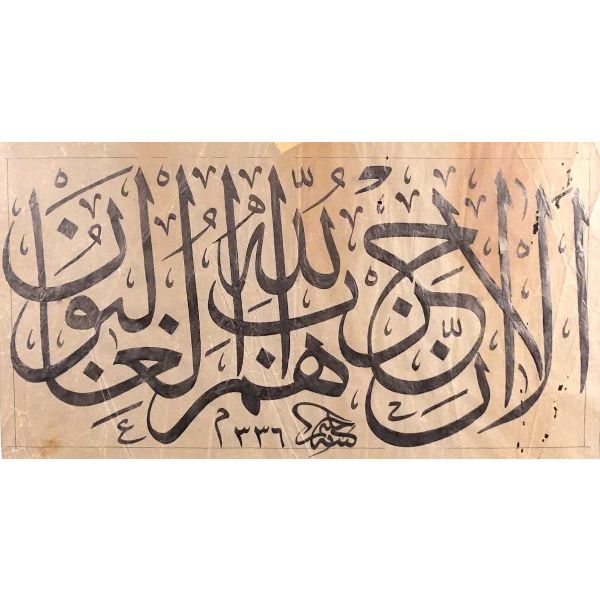 الا ان حزب الله هم الغالبون
١٣٣٦